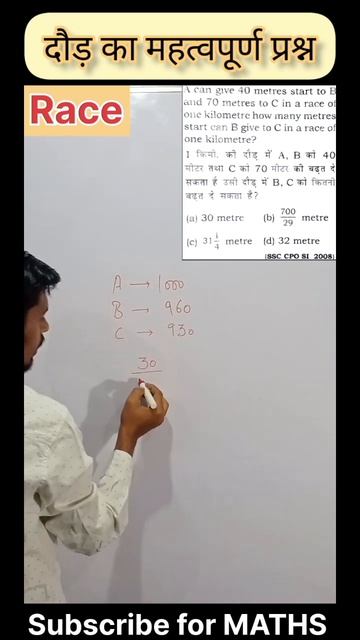 दौड़ का महत्वपूर्ण प्रश्न
Race
A can give 40 metres start to B
and 70 metres to C in a race of
one kilometre how many metres
start can B give to C in a race of
one kilometre?
1 किमी. की दौड़ में A, B को 40
मीटर तथा C को 70 मीटर की बढ़त दे
सकता है उसी दौड़ में B, C को कितनी
बढ़त दे सकता है?
(a) 30 metre (b) 700/29 metre
(c) 31 1/4 metre (d) 32 metre
(SSC CPO SI 2008)
A → 1000
B → 960
C → 930
30
Subscribe for MATHS